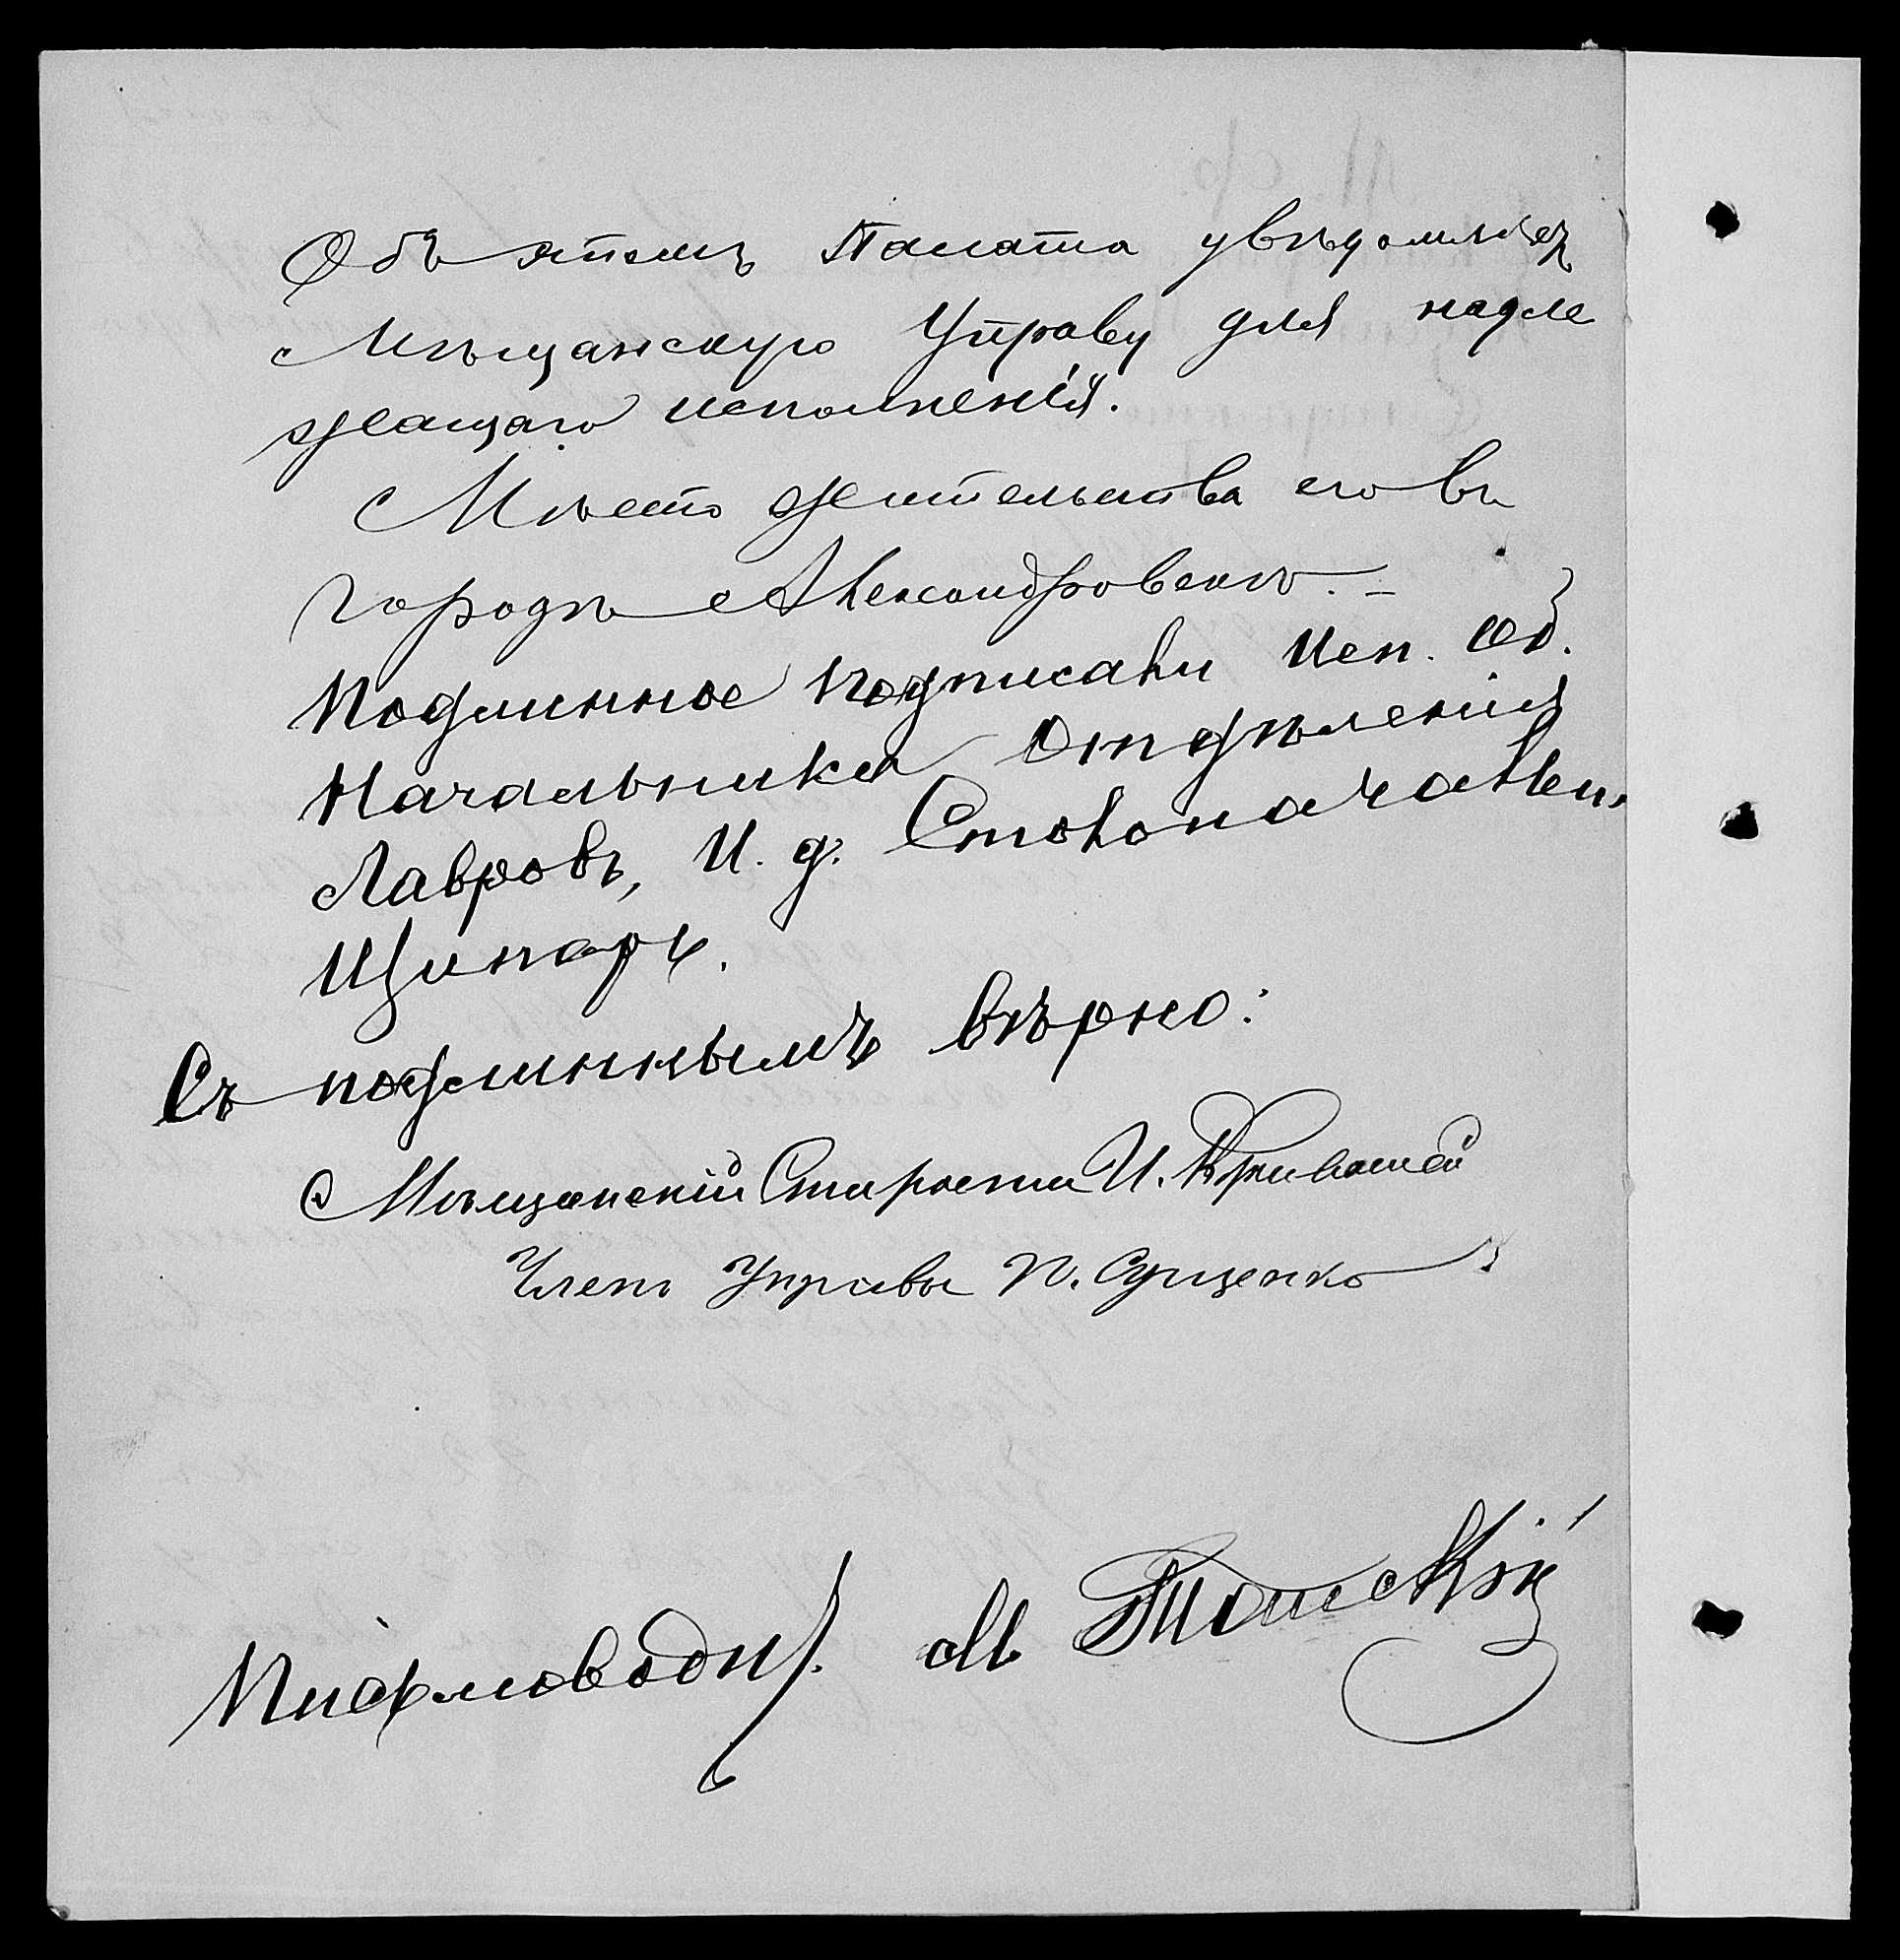 Объ этомъ Палата увѣдомляетъ
Мѣщанскую Управу для надле
жащаго исполненія.
Мѣсто жительства его въ
городѣ Александровскѣ. –
Подлинное подписали Исп. Об.
Начальника Отдѣленія
Лавровъ, И. д. Столоначальн.
Щипарь.
Съ подлиннымъ вѣрно:
Мѣщанскій Староста И.
Членъ Управы П. Сущенко
Письмоводит.